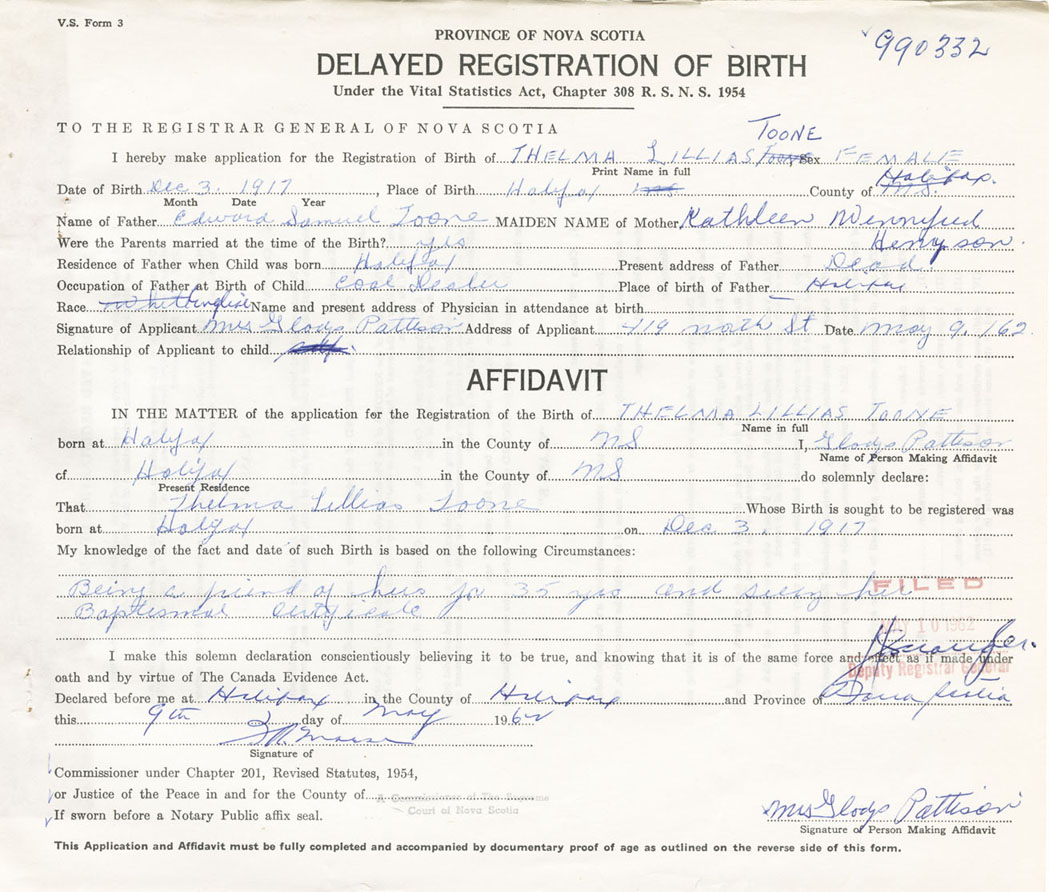 V.S. Form 3
PROVINCE OF NOVA SCOTIA
990332
DELAYED REGISTRATION OF BIRTH
Under the Vital Statistics Act, Chapter 308 R. S. N. S. 1954
TO THE REGISTRAR GENERAL OF NOVA SCOTIA
TOONE
I hereby make application for the Registration of Birth of THELMA LILLIAS Toone Sex FEMALE
Print Name in full
Halifax.
Date of Birth Dec 3. 1917, Place of Birth Halifax County of N.S.
Month Date Year
Name of Father Edward Samuel Toone MAIDEN NAME of Mother Kathleen Winnyfred
Were the Parents married at the time of the Birth? yes Henryson.
Residence of Father when Child was born Halifax Present address of Father Dead
Occupation of Father at Birth of Child Coal Dealer Place of birth of Father Halifax
Race White English Name and present address of Physician in attendance at birth
Signature of Applicant Mrs Gladys Pattison Address of Applicant 419 North St Date May 9, /62
Relationship of Applicant to child self.
AFFIDAVIT
IN THE MATTER of the application for the Registration of the Birth of THELMA LILLIAS TOONE
Name in full
born at Halifax in the County of NS I, Gladys Pattison
Name of Person Making Affidavit
of Halifax in the County of NS do solemnly declare:
Present Residence
That Thelma Lillias Toone Whose Birth is sought to be registered was
born at Halifax on Dec 3. 1917
My knowledge of the fact and date of such Birth is based on the following Circumstances:
Being a friend of hers for 35 yrs and seeing her
Baptismal Certificate
FILED
MAY 10 1962
I make this solemn declaration conscientiously believing it to be true, and knowing that it is of the same force and effect as if made under
oath and by virtue of The Canada Evidence Act.
Deputy Registrar General
Declared before me at Halifax in the County of Halifax and Province of Nova Scotia
this 9th day of May 1962
Signature of
Commissioner under Chapter 201, Revised Statutes, 1954,
or Justice of the Peace in and for the County of A Commissioner of The Supreme
Court of Nova Scotia
If sworn before a Notary Public affix seal.
Mrs Gladys Pattison
Signature of Person Making Affidavit
This Application and Affidavit must be fully completed and accompanied by documentary proof of age as outlined on the reverse side of this form.